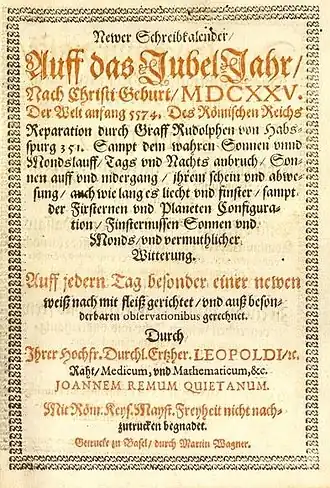 Newer Schreibkalender/
Auff das Jubel Jahr/
Nach Christi Geburt/ MDCXXV.
Der Welt anfang 5574. Des Römischen Reichs
Reparation durch Graff Rudolphen von Habs-
spurg 351. Sampt dem wahren Sonnen vnnd
Mondslauff/ Tags vnd Nachts anbruch/ Son-
nen auff vnd nidergang/ jhrem schein vnd abwe-
sung/ auch wie lang es liecht vnd finster/ sampt
der Fixsternen vnd Planeten Configura-
tion/ Finsternussen Sonnen vnd
Monds/ vnd vermuthlicher
Witterung.
Auff jedern Tag besonder einer newen
weiß nach mit fleiß gerichtet/ vnd auß beson-
derbaren observationibus gerechnet.
Durch
Ihrer Hochfr. Durchl. Ertzher. LEOPOLDI/ꝛc.
Raht/ Medicum, vnd Mathematicum, &c.
JOANNEM REMUM QUIETANUM.
Mit Röm. Keys. Mayst. Freyheit nicht nach-
zutrucken begnadet.
Getruckt zu Basel/ durch Martin Wagner.